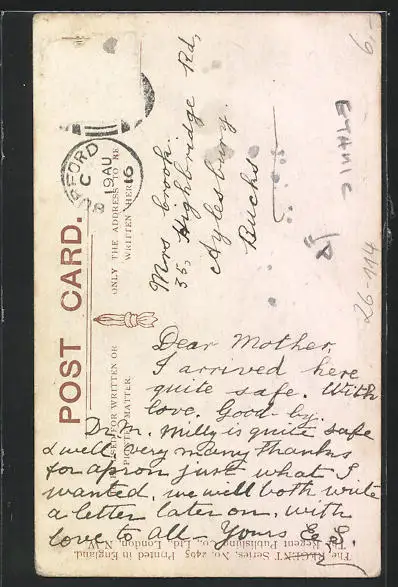 POST CARD.
ONLY THE ADDRESS TO BE
WRITTEN HERE
BURFORD
C
19 AU
16
Mrs Cook.
35, Highbridge Rd,
Aylesbury.
Bucks
6,-
26-114
USED FOR WRITTEN OR
PRINTED MATTER.
Dear Mother,
I arrived here
quite safe. With
love. Good-by.
Dr. M. Milly is quite safe
& well. very many thanks
for apron just what I
wanted. we will both write
a letter later on. with
love to all - Yours E. S.
The REGENT Series, No. 2495 Printed in England.
The Regent Publishing Co., Ltd., London, N.W.